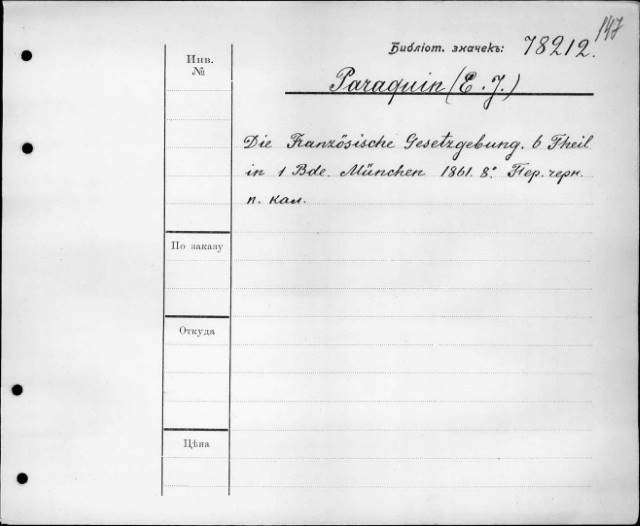 147
Библіот. значекъ: 78212.
Инв.
№
Paraquin (E. J.)
Die Französische Gesetzgebung. 6 Theil
in 1 Bde. München 1861. 8º. Пер. черн.
п. кал.
По заказу
Откуда
Цѣна